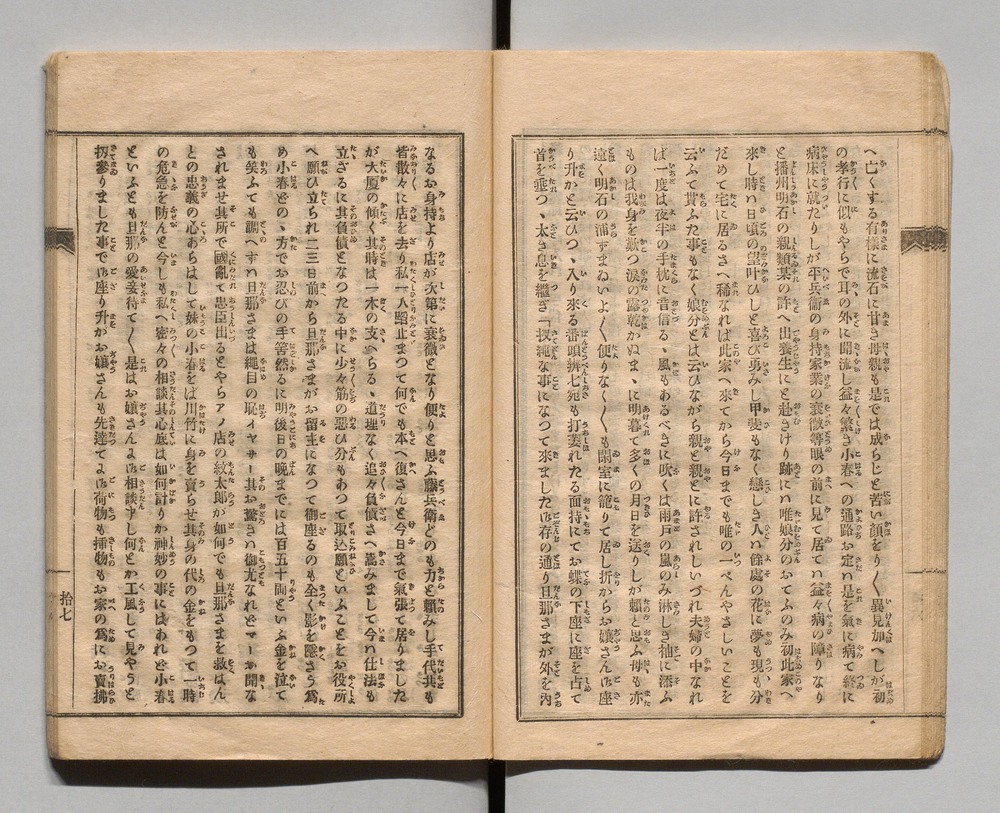 へ亡くする有様に流石に甘き母親も是では成らじと苦い顔をり〱異見加へしが初
の孝行に似もやらで耳の外に聞流し益々繁き小春への通路お定ハ是を氣に病て終に
病床に就たりしが平兵衞の身持家業の衰微等眼の前に見て居てハ益々病の障りなり
と播州明石の親類某の許へ出養生にと赴きけり跡にハ唯娘分のおてふのみ初此家へ
來し時ハ日頃の望叶ひしと喜び勇みし甲斐もなく戀しき人ハ餘處の花に夢も現も分
だめて宅に居るさへ稀なれば此家へ來てから今日までも唯の一ぺんやさしいことを
云ふて貰ふた事もなく娘分とは云ひながら親と親とに許されしいづれ夫婦の中なれ
ば一度は夜半の手枕に音信るゝ風もあるべきに吹くは雨戸の嵐のみ淋しき袖に添ふ
ものは我身を歎つ涙の露乾かぬまゝに明暮て多くの月日を送りしが賴と思ふ母も亦
遠く明石の浦ずまゐいよ〱便りなく〱も閑室に籠りて居し折からお孃さんハ座
り升かと云ひつゝ入り來る番頭辨七宛も打萎れたる面持にてお蝶の下座に座を占て
首を埀つゝ太き息を繼ぎ 扨繩な事になつて來ました御存の通り旦那さまが外を内
なるお身持より店が次第に衰微となり便りと思ふ藤兵衛どのも力と賴みし手代共も
皆散々に店を去り私一人踏止まつて何でも本へ復さんと今日まで氣張て居りました
が大厦の傾く其時は一木の支へらるゝ道理なく追々負債さへ嵩みまして今ハ仕法も
立ざるに其負債となつたる中に少々筋の惡ひ分もあつて取込願といふことをお役所
へ願ひ立られ二三日前から旦那さまがお留主になつて御座るのも全く影を隱さう爲
め小春どのゝ方でお忍びの手筈然るに明後日の晩までには百五十両といふ金を泣て
も矣ふても調へずハ旦那さまは繩目の恥イヤサー其お驚きハ御尤なれどマーお聞な
されませ其所で國亂て忠臣出るとやらアノ店の紋太郎が如何でも旦那さまを救はん
との忠義の心あらはして妹の小春をば川竹に身を賣らせ其身の代の金をもつて一時
の危急を防んと今しも私へ密々の相談其心底は如何計りか神妙の事にはあれど小春
といふとも旦那の愛妾待て〱是はお孃さんよ御相談申し何とか工風して見やうと
扨參りました事で御座り升かお孃さんも先達てよ御荷物も揷物もお家の爲にお賣拂
拾七